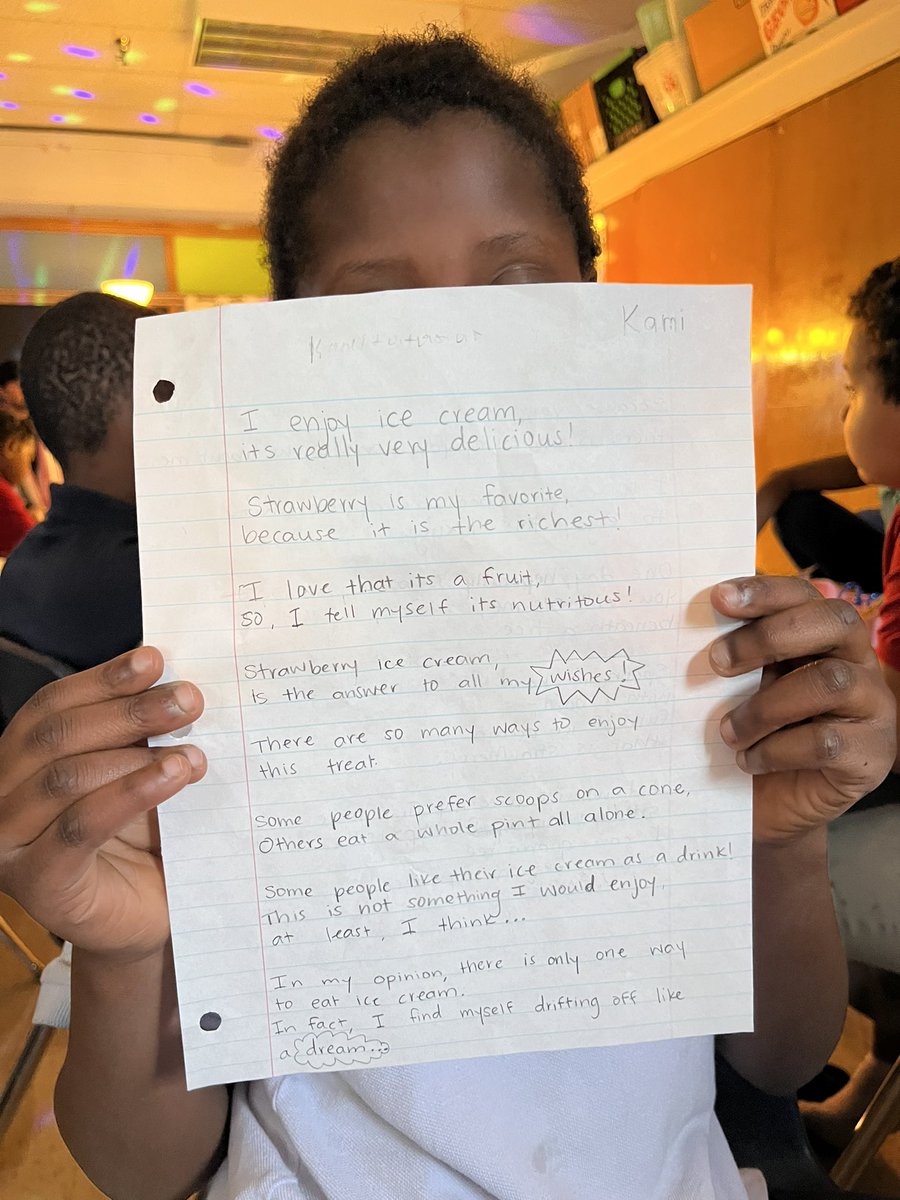 Kami
I enjoy ice cream,
its really very delicious!
Strawberry is my favorite,
because it is the richest!
I love that its a fruit,
so, I tell myself its nutritous!
Strawberry ice cream,
Is the answer to all my wishes!
There are so many ways to enjoy
this treat.
Some people prefer scoops on a cone,
Others eat a whole pint all alone.
Some people like their ice cream as a drink!
This is not something I would enjoy.
at least, I think...
In my opinion, there is only one way
to eat ice cream.
In fact, I find myself drifting off like
a dream...